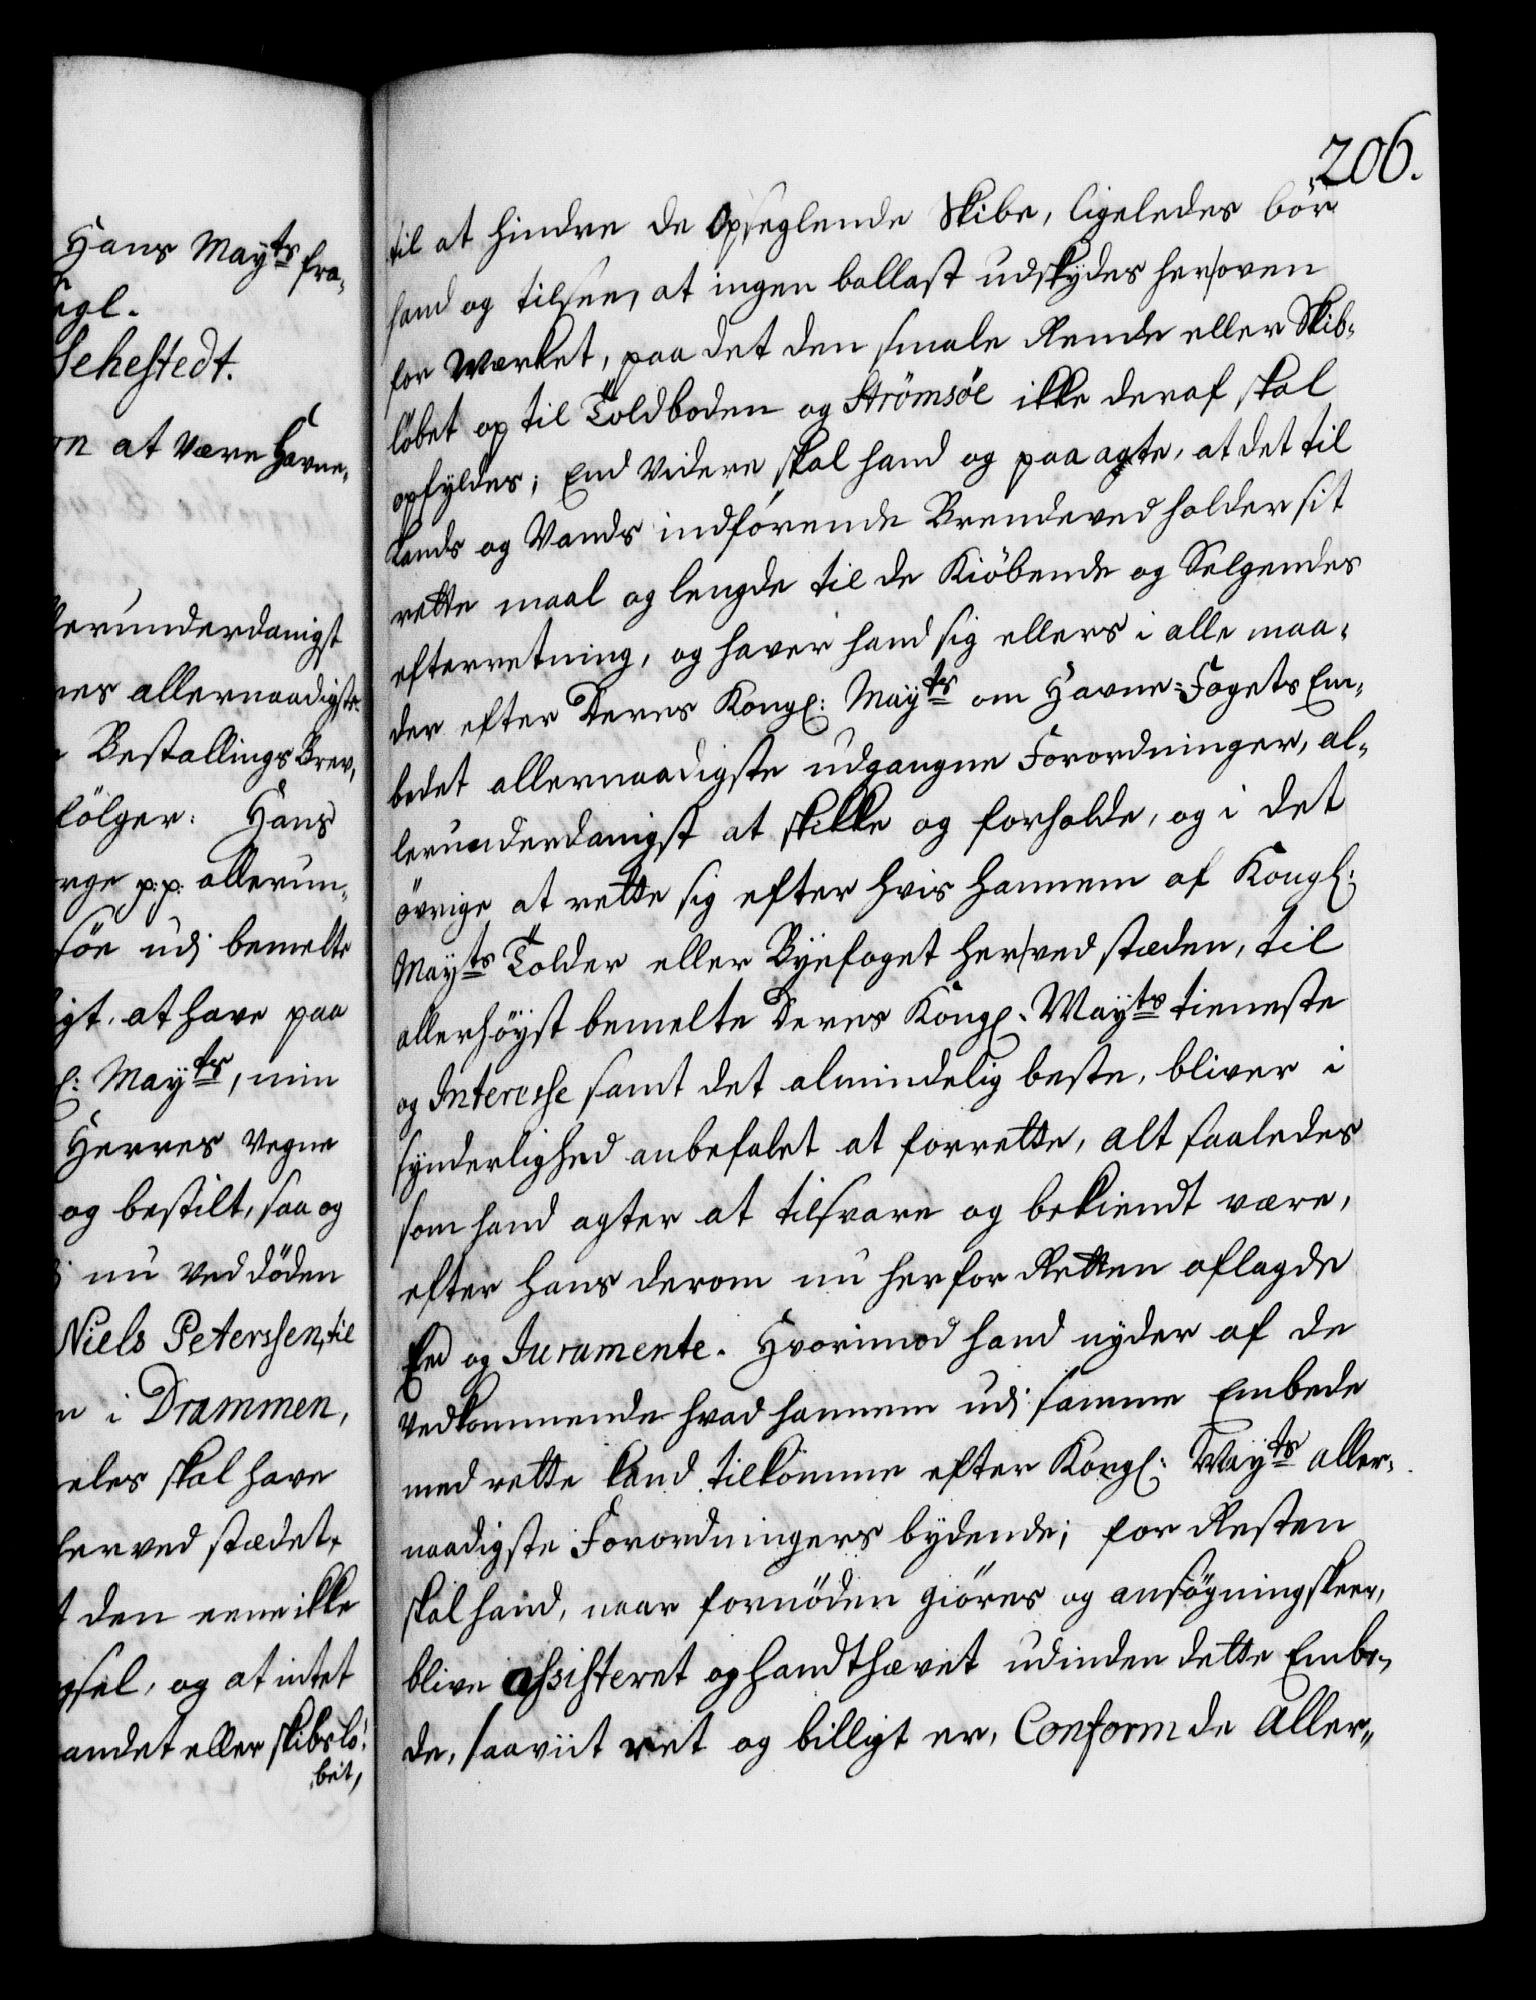 Hans Mayts fra-
egl.
Sehestedt.
on at være Havne-
lerunderdanigst
res allernaadigste
Bestallings Brev,
fölger: Hans
rge p:p: allerun-
söe udj bemelte
igt, at have paa
l: Mayts, min
Herres Vegne
og bestilt, saa og
nu ved döden
Niels Peterssen, til
n i Drammen,
eles skal have
herved stædet,
t den eene ikke
gsel, og at intet
andet eller skibslö-
beit,
206.
til at hindre de Opseglende Skibe, ligeledes bör
hand og tilsee, at ingen ballast udskydes her oven
for Værket, paa det den smale Rende eller Skib-
löbet op til Toldboden og Strömsöe ikke deraf skal
opfyldes; End videre skal hand og paa agte, at det til
Lands og Vands indförende Brendeved holder sit
rette maal og lengde til de Kiöbende og Selgendes
efterretning, og haver hand sig ellers i alle maa-
der efter Deres Kongl: Mayts om Havne-Fogets Em-
bedet allernaadigste udgangne Forordninger, al-
lerunderdanigst at skikke og forholde, og i det
övrige at rette sig efter hvis hannem af Kongl:
Mayts Tolder eller Byefoget her ved stæden, til
allerhöyst bemelte Deres Kongl. Mayts tieneste
og Interesse samt det almindelig beste, bliver i
synderlighed anbefalet at forrette, alt saaledes
som hand agter at tilsvare og bekiendt være,
efter hans derom nu her for Retten aflagde
Eed og Juramente. Hvorimod hand nyder af de
Vedkommende hvad hannem udj samme Embede
med rette kand tilkomme efter Kongl: Mayts aller-
naadigste Forordningers bydende; for Resten
skal hand, naar fornöden giöres og ansögning skeer,
blive assisteret og handthævet udinden dette Embe-
de, saaviit ret og billigt er, Conform de Aller-